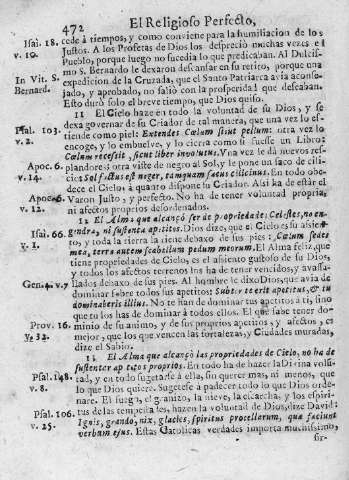 472 El Religioso Perfecto,
Isai. 18. cede à tiempos, y como conviene para la humiliacion de los
v. 10. Justos. A los Profetas de Dios los despreciò muchas vezes el
Pueblo, porque luego no sucedia lo que predicaban. Al Dulcisi-
In Vit. S. mo S. Bernardo le dexaron descansar en su retiro, porque una
Bernard. expedicion de la Cruzada, que el Santo Patriarca avia aconse-
jado, y aprobado, no saliò con la prosperidad que deseaban.
Esto durò solo el breve tiempo, que Dios quiso.
11 El Cielo haze en todo la voluntad de su Dios, y se
dexa governar de su Criador de tal manera, que una vez lo es-
Psal. 103. tiende como piel: Extendes Cœlum sicut pellem: otra vez lo
v. 2. encoge, y lo embuelve, y lo cierra como si fuesse un Libro:
Cœlum recessit, sicut liber involutus. Una vez le dà nuevos res-
Apoc. 6. plandores: otra vele de negro al Sol, y le pone un saco de cili-
v. 14. cio: Sol factus est niger, tamquam saccus cilicinus. En todo obe-
dece el Cielo à quanto dispone su Criador. Assi ha de estàr el
Apoc. 6. Varon Justo, y perfecto. No ha de tener voluntad propria,
v. 12. ni afectos proprios desordenados.
12 El Alma que alcançò ser de propriedades Celestes, no en-
Isai. 66. gendra, ni sustenta apetitos. Dios dize, que el Cielo es su assien-
v. 1. to, y toda la tierra la tiene debaxo de sus pies: Cœlum sedes
mea, terra autem scabellum pedum meorum. El Alma feliz, que
tiene propriedades de Cielo, es el assiento gustoso de su Dios,
y todos los afectos terrenos los ha de tener vencidos, y avassa-
Gen. 4. v. 7 llados debaxo de sus pies. Al hombre le dixo Dios, que avia de
dominar sobre todos sus apetitos: Subter te erit apetitus, & tu
dominaberis illius. No te han de dominar tus apetitos à ti, sino
que tu los has de dominar à todos ellos. El que sabe tener do-
Prov. 16. minio de su animo, y de sus proprios apetitos, y afectos, es
v. 32. mejor, que los que vencen las fortalezas, y Ciudades muradas,
dize el Sabio.
13 El Alma que alcançò las propriedades de Cielo, no ha de
sustentar apetitos proprios. En todo ha de hazer la Divina volun-
Psal. 148. tad, y en todo sugetarse à ella, sin querer mas, ni menos, que
v. 8. lo que Dios quiere. Sugetese à padecer todo lo que Dios orde-
nare. El fuego, el granizo, la nieve, la escarcha, y los espiri-
Psal. 106. tus de las tempestades, hazen la voluntad de Dios, dize David:
v. 25. Ignis, grando, nix, glacies, spiritus procellarum, quæ faciunt
verbum ejus. Estas Catolicas verdades importa muchissimo,
sir-